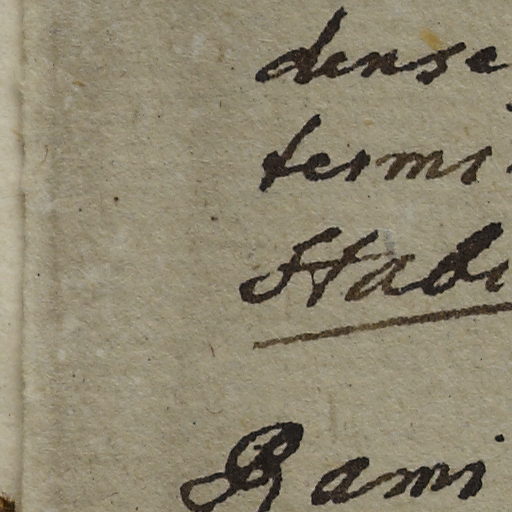 dense
termi
Habi
Rami